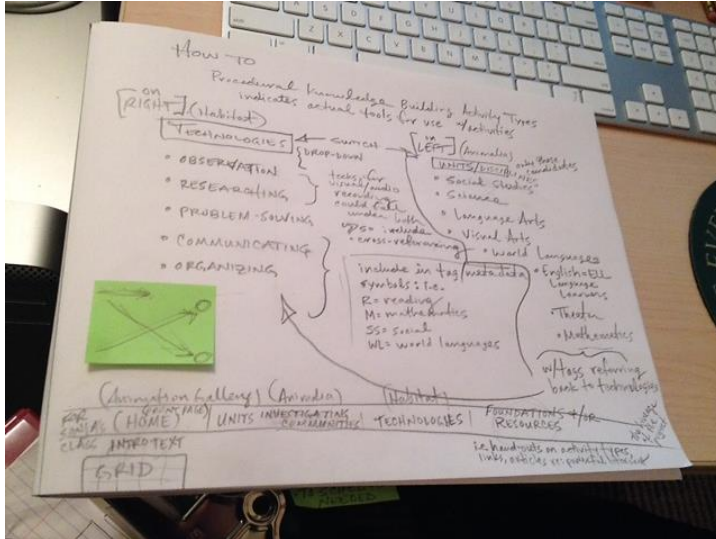 HOW-TO
Procedural Knowledge Building Activity Types
indicates actual tools for use w/activities
[on RIGHT] (Habitat)
TECHNOLOGIES
SWITCH
DROP-DOWN
[on LEFT] (Animalia)
UNITS/
• OBSERVATION
• RESEARCHING
• PROBLEM-SOLVING
• COMMUNICATING
• ORGANIZING
tools for
visual/audio
recording
could fall
under both
include
cross-referencing
• Social Studies
• Science
• Language Arts
• Visual Arts
• World Languages
• English = ELL
Language
Learners
• Theater
• Mathematics
include in tag/metadata
symbols: i.e.
R = reading
M = mathematics
SS = social
WL = world languages
w/tags referring
back to technologies
(Animation Gallery) (Animalia) (Habitat)
FOR
CLASS
(HOME) UNITS INVESTIGATING COMMUNITIES | TECHNOLOGIES | FOUNDATIONS &/OR RESOURCES
INTRO TEXT
GRID
i.e. hand-outs on activity types,
links, articles re:
NEEDED